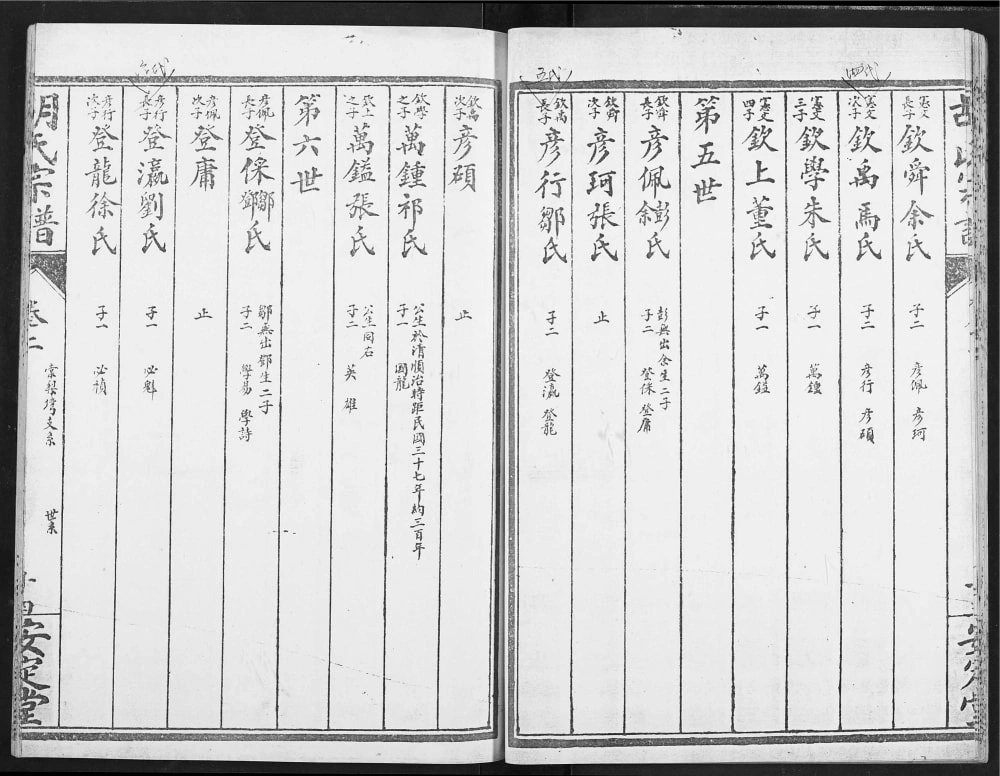 四代
憲文長子 欽舜余氏 子二 彥佩 彥珂
憲文次子 欽禹馬氏 子二 彥行 彥碩
憲文三子 欽學朱氏 子一 萬鍾
憲文四子 欽上董氏 子一 萬鎰
第五世
五代
欽舜長子 彥佩彭余氏 子二 彭無出余生二子 登保 登庸
欽舜次子 彥珂張氏 止
欽禹長子 彥行鄒氏 子二 登瀛 登龍
欽禹次子 彥碩 止
欽學之子 萬鍾祁氏 子一 公生於清順治時距民國三十七年約三百年 國龍
欽上之子 萬鎰張氏 子二 公生同右 英 雄
第六世
六代
彥佩長子 登保鄒鄧氏 子二 鄒無出鄧生二子 學易 學詩
彥佩次子 登庸 止
彥行長子 登瀛劉氏 子一 必魁
彥行次子 登龍徐氏 子一 必禎
胡氏宗譜
卷十二
棠梨塆支系
世系
十四
安定堂